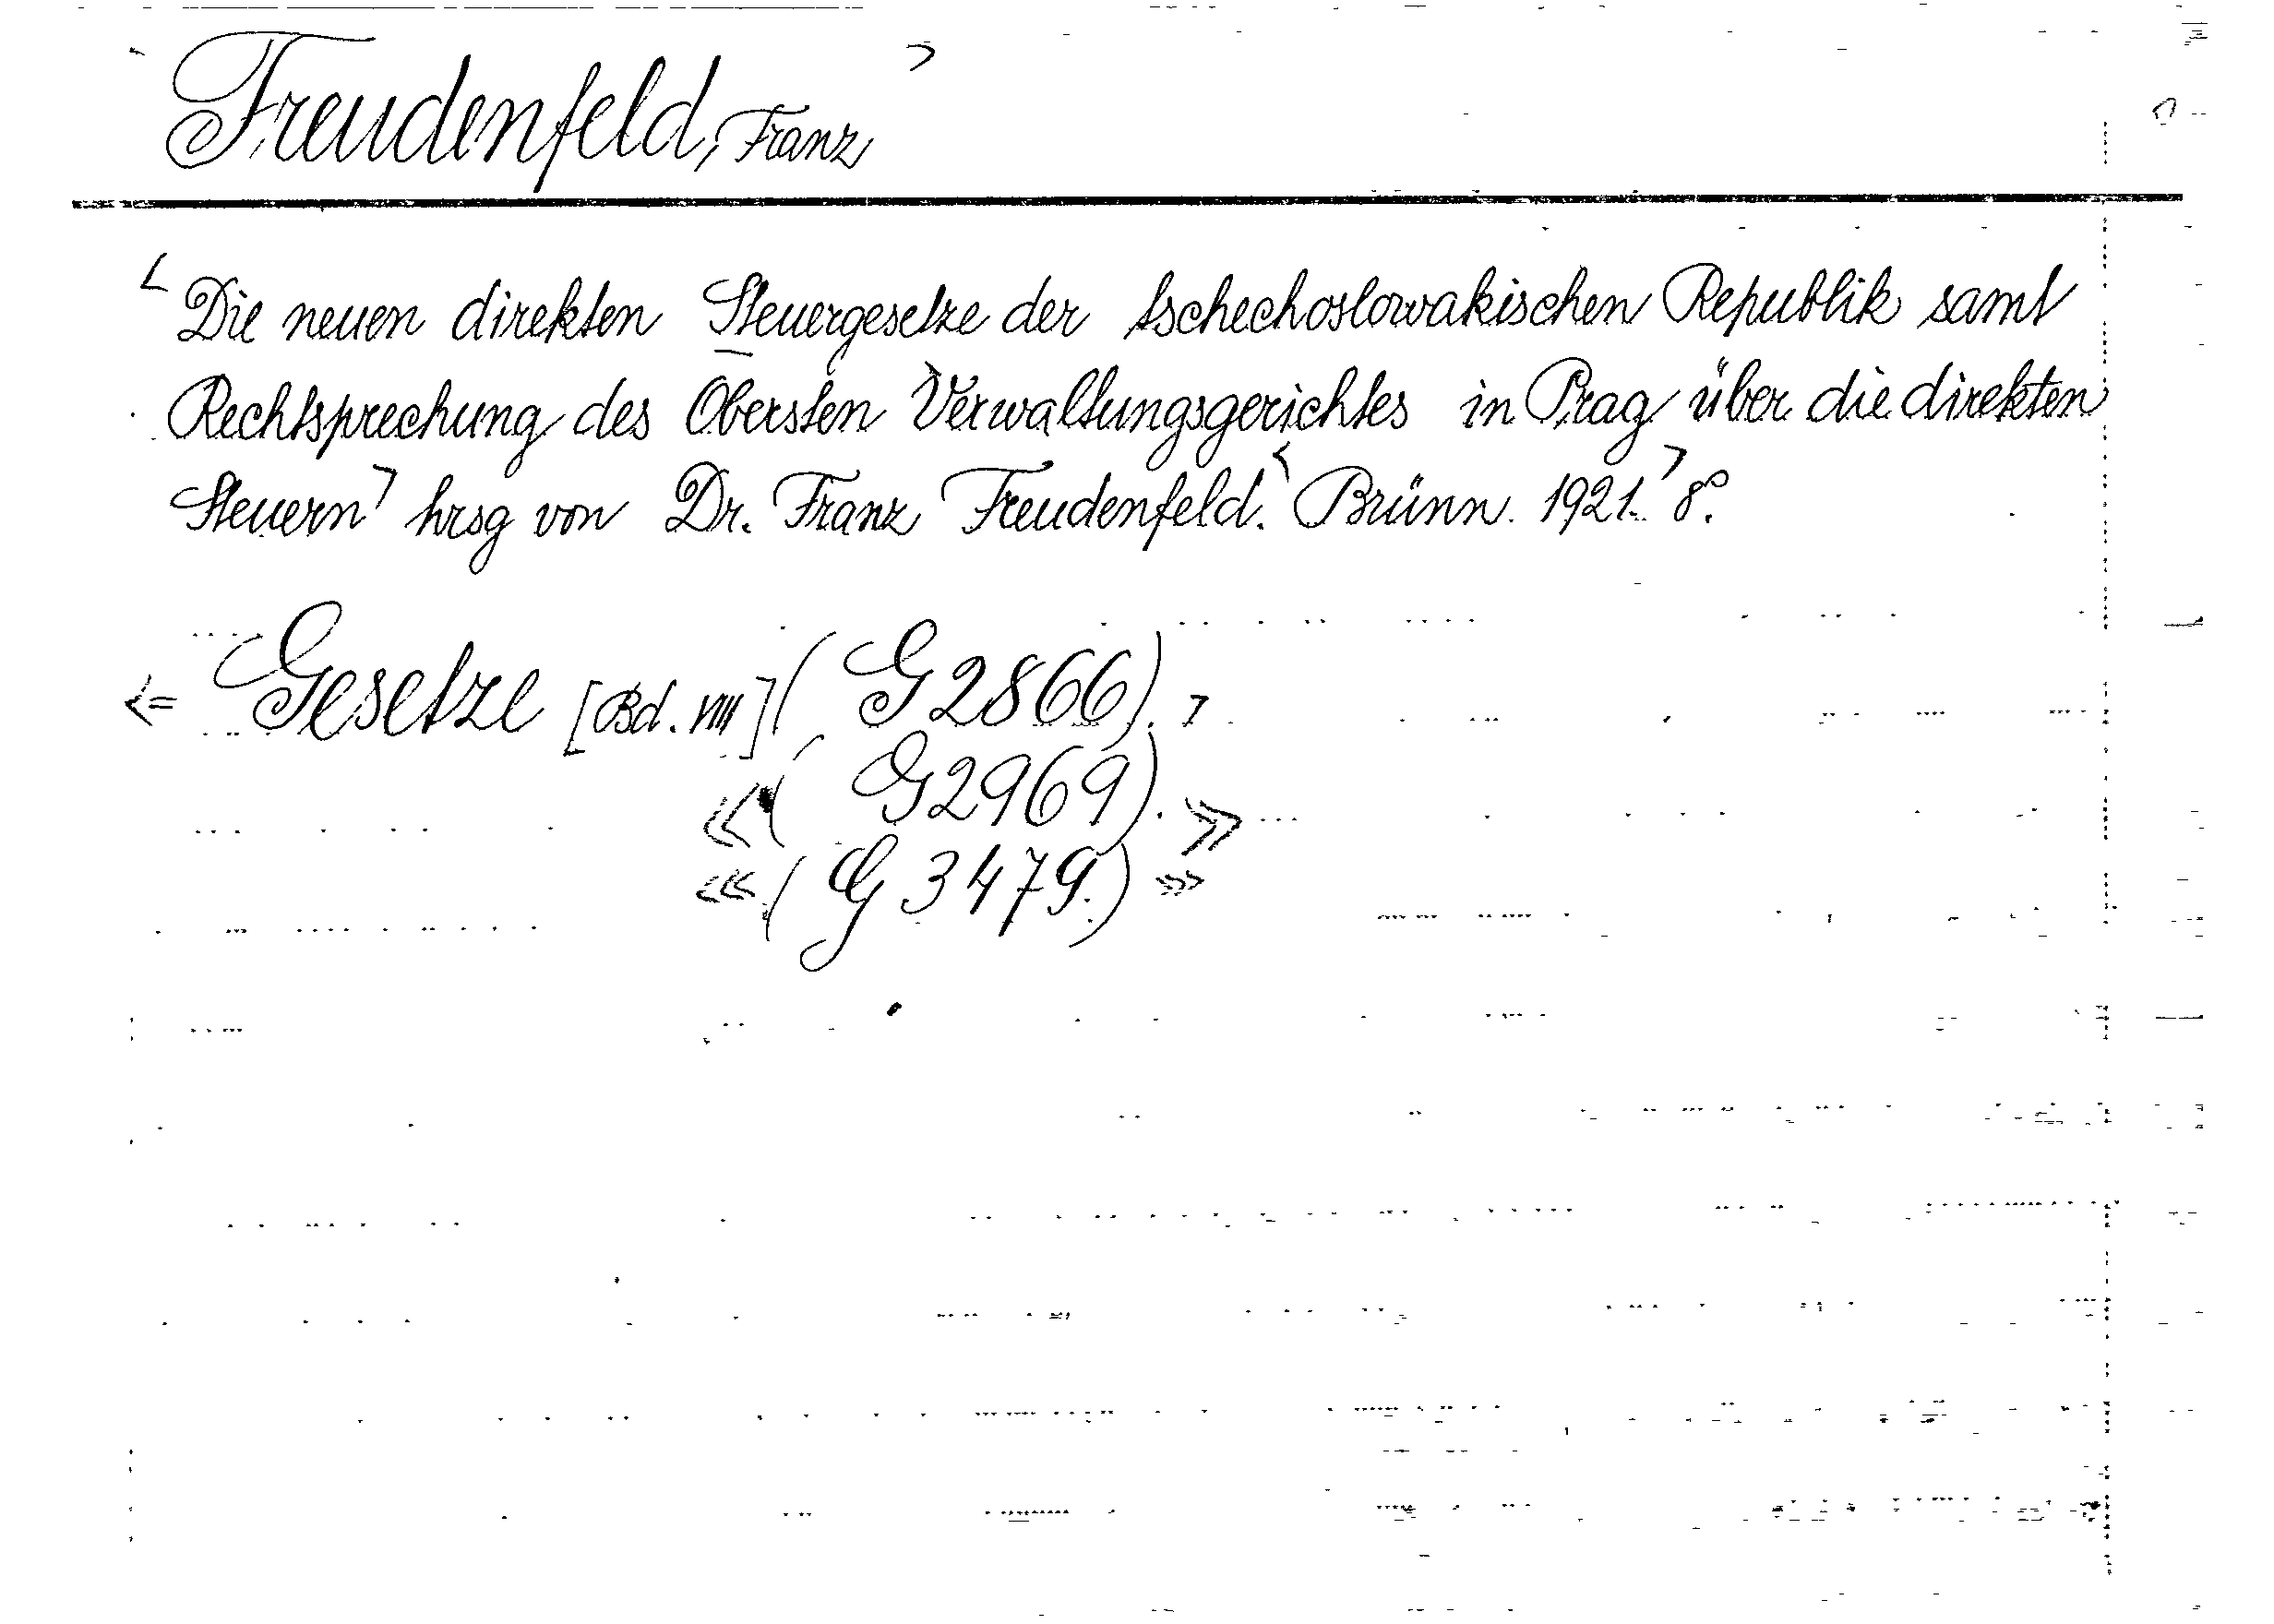 Freudenfeld, Franz >
< Die neuen direkten Steuergesetze der tschechoslowakischen Republik samt
Rechtsprechung des Obersten Verwaltungsgerichtes in Prag über die direkten
Steuern > hrsg von Dr. Franz Freudenfeld. < Brünn. 1921. > 8°.
<= Gesetze [Bd. VIII] ( G 2866). >
<< ( G 2969). >>
<<< ( G 3479.) >>>